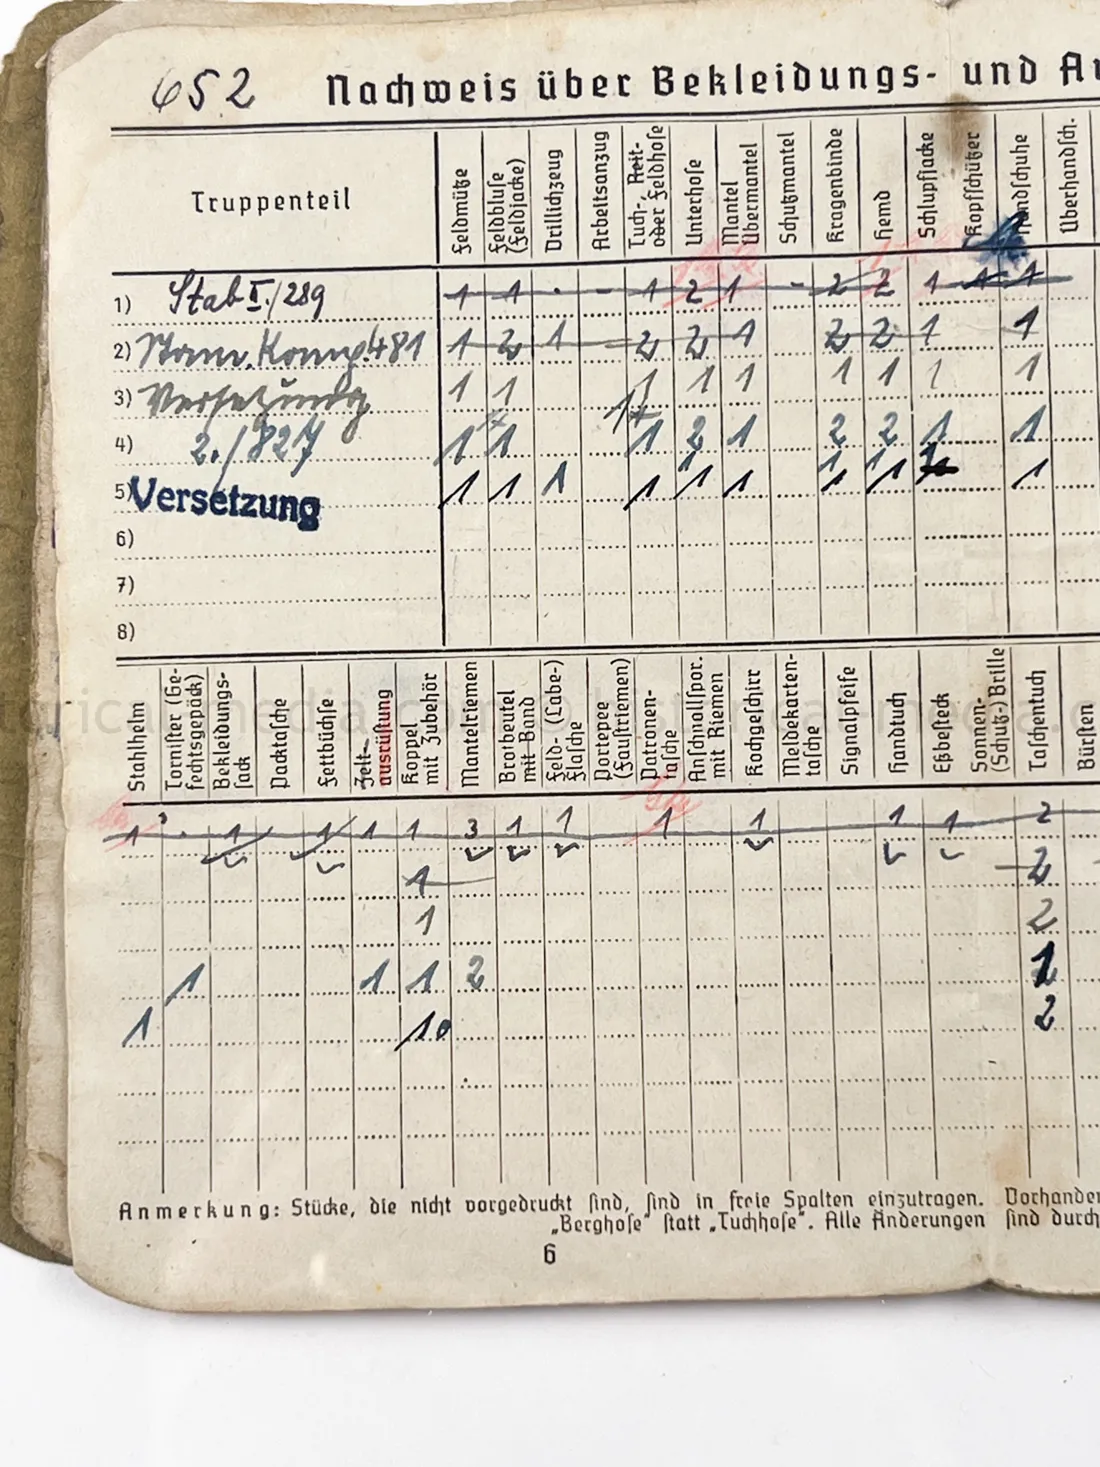 652 Nachweis über Bekleidungs- und
Truppenteil
Feldmütze
Feldbluse (Feldjacke)
Drillichzeug
Arbeitsanzug
Tuch-, Reit- oder Feldhose
Unterhose
Mantel Übermantel
Schutzmantel
Kragenbinde
Hemd
Schlupfjacke
Kopfschützer
Handschuhe
Überhandsch.
1) Stab I./289 1 1 · – 1 2 1 – 2 2 1 1 1
2) Stam. Komp. 481 1 2 1 2 2 1 2 2 1 1
3) Versetzung 1 1 1 1 1 1 1 1 1
4) 2./827 1 1 1 2 1 2 2 1 1
5) Versetzung 1 1 1 1 1 1 1 1 1
6)
7)
8)
Stahlhelm
Tornister (Gefechtsgepäck)
Bekleidungssack
Packtasche
Fettbüchse
Zeltausrüstung
Koppel mit Zubehör
Mantelriemen
Brotbeutel mit Band
Feld- (Labe-) Flasche
Portepee (Faustriemen)
Patronentasche
Anschnallspor. mit Riemen
Kochgeschirr
Meldekartentasche
Signalpfeife
Handtuch
Eßbesteck
Sonnen- (Schutz-) Brille
Taschentuch
Bürsten
1 1 1 1 1 3 1 1 1 1 1 1 2
1 2
1 2
1 1 1 2 1
1 1 2
Anmerkung: Stücke, die nicht vorgedruckt sind, sind in freie Spalten einzutragen.
„Berghose“ statt „Tuchhose“. Alle Änderungen sind durch
6